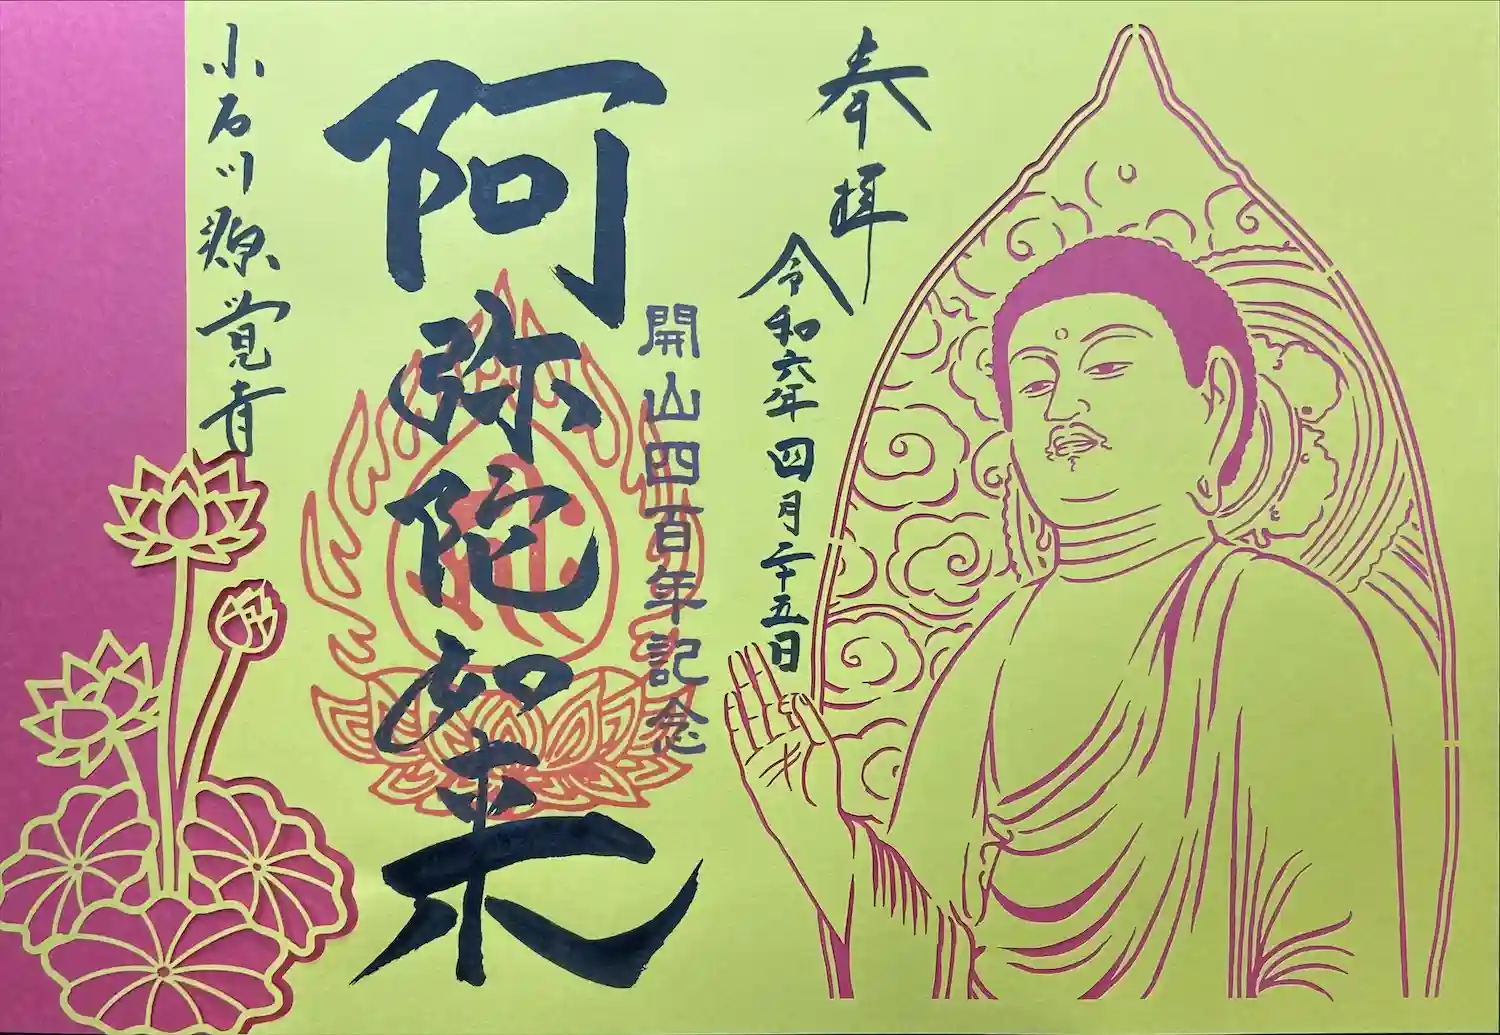 奉拝
令和六年四月二十五日
開山四百年記念
阿弥陀如来
小石川源覚寺